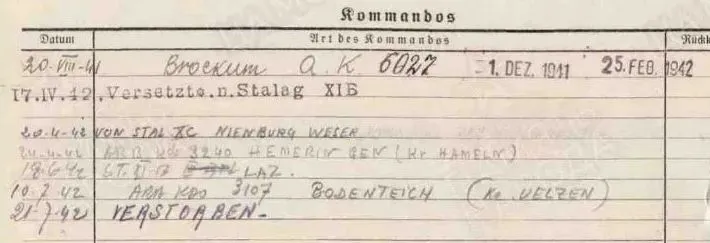 Kommandos
Datum Art des Kommandos Rückk
20.VIII.41 Brockum A.K 6027 -1. DEZ. 1941 25. FEB. 1942
17.IV.42. Versetzt n. Stalag XIB
20-4-42 VON STAL XC NIENBURG WESER
24.4.42 ARB KDO 3240 HEMERINGEN (Kr HAMELN)
18.6.42 ST. LAZ.
10.7.42 ARB KDO 3107 BODENTEICH (Kr. UELZEN)
21.7.42 VERSTORBEN-